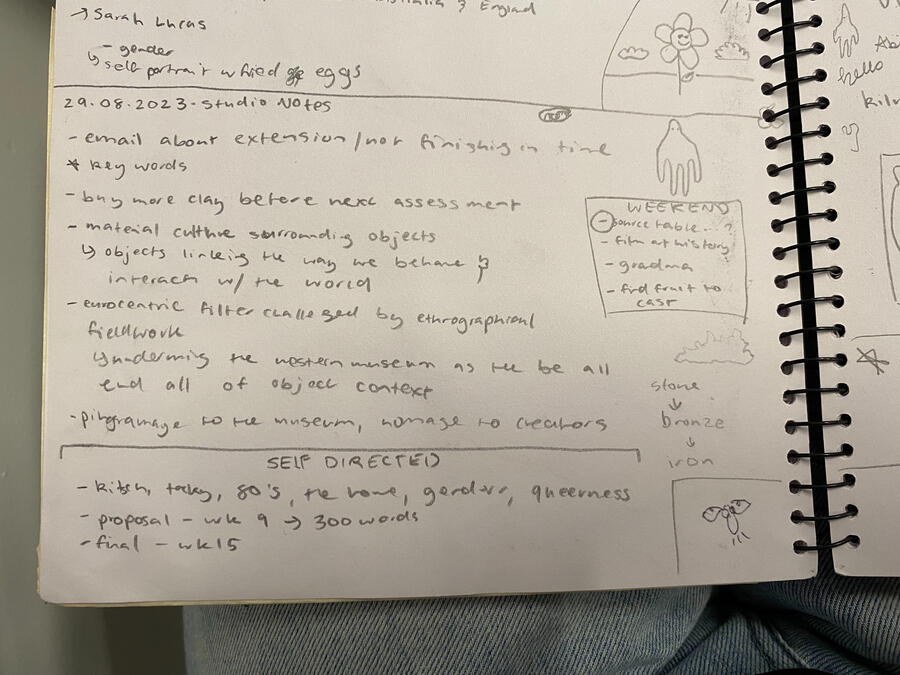 & England
→ Sarah Lucas
- gender
↳ self portrait w fried eggs
29.08.2023 - Studio Notes
- email about extension/not finishing in time
* key words
- buy more clay before next assessment
- material culture surrounding objects
↳ objects linking the way we behave &
interact w/ the world
- eurocentric filter challenged by ethnographical
fieldwork
↳ undermining the western museum as the be all
end all of object context
- pilgramage to the museum, homage to creators
SELF DIRECTED
- kitsch, tacky, 80's, the home, gender, queerness
- proposal - wk 9 → 300 words
- final - wk 15
WEEKEND
- source table...?
- film art history
- grandma
- find fruit to
cast
stone
↓
bronze
↓
iron
hello